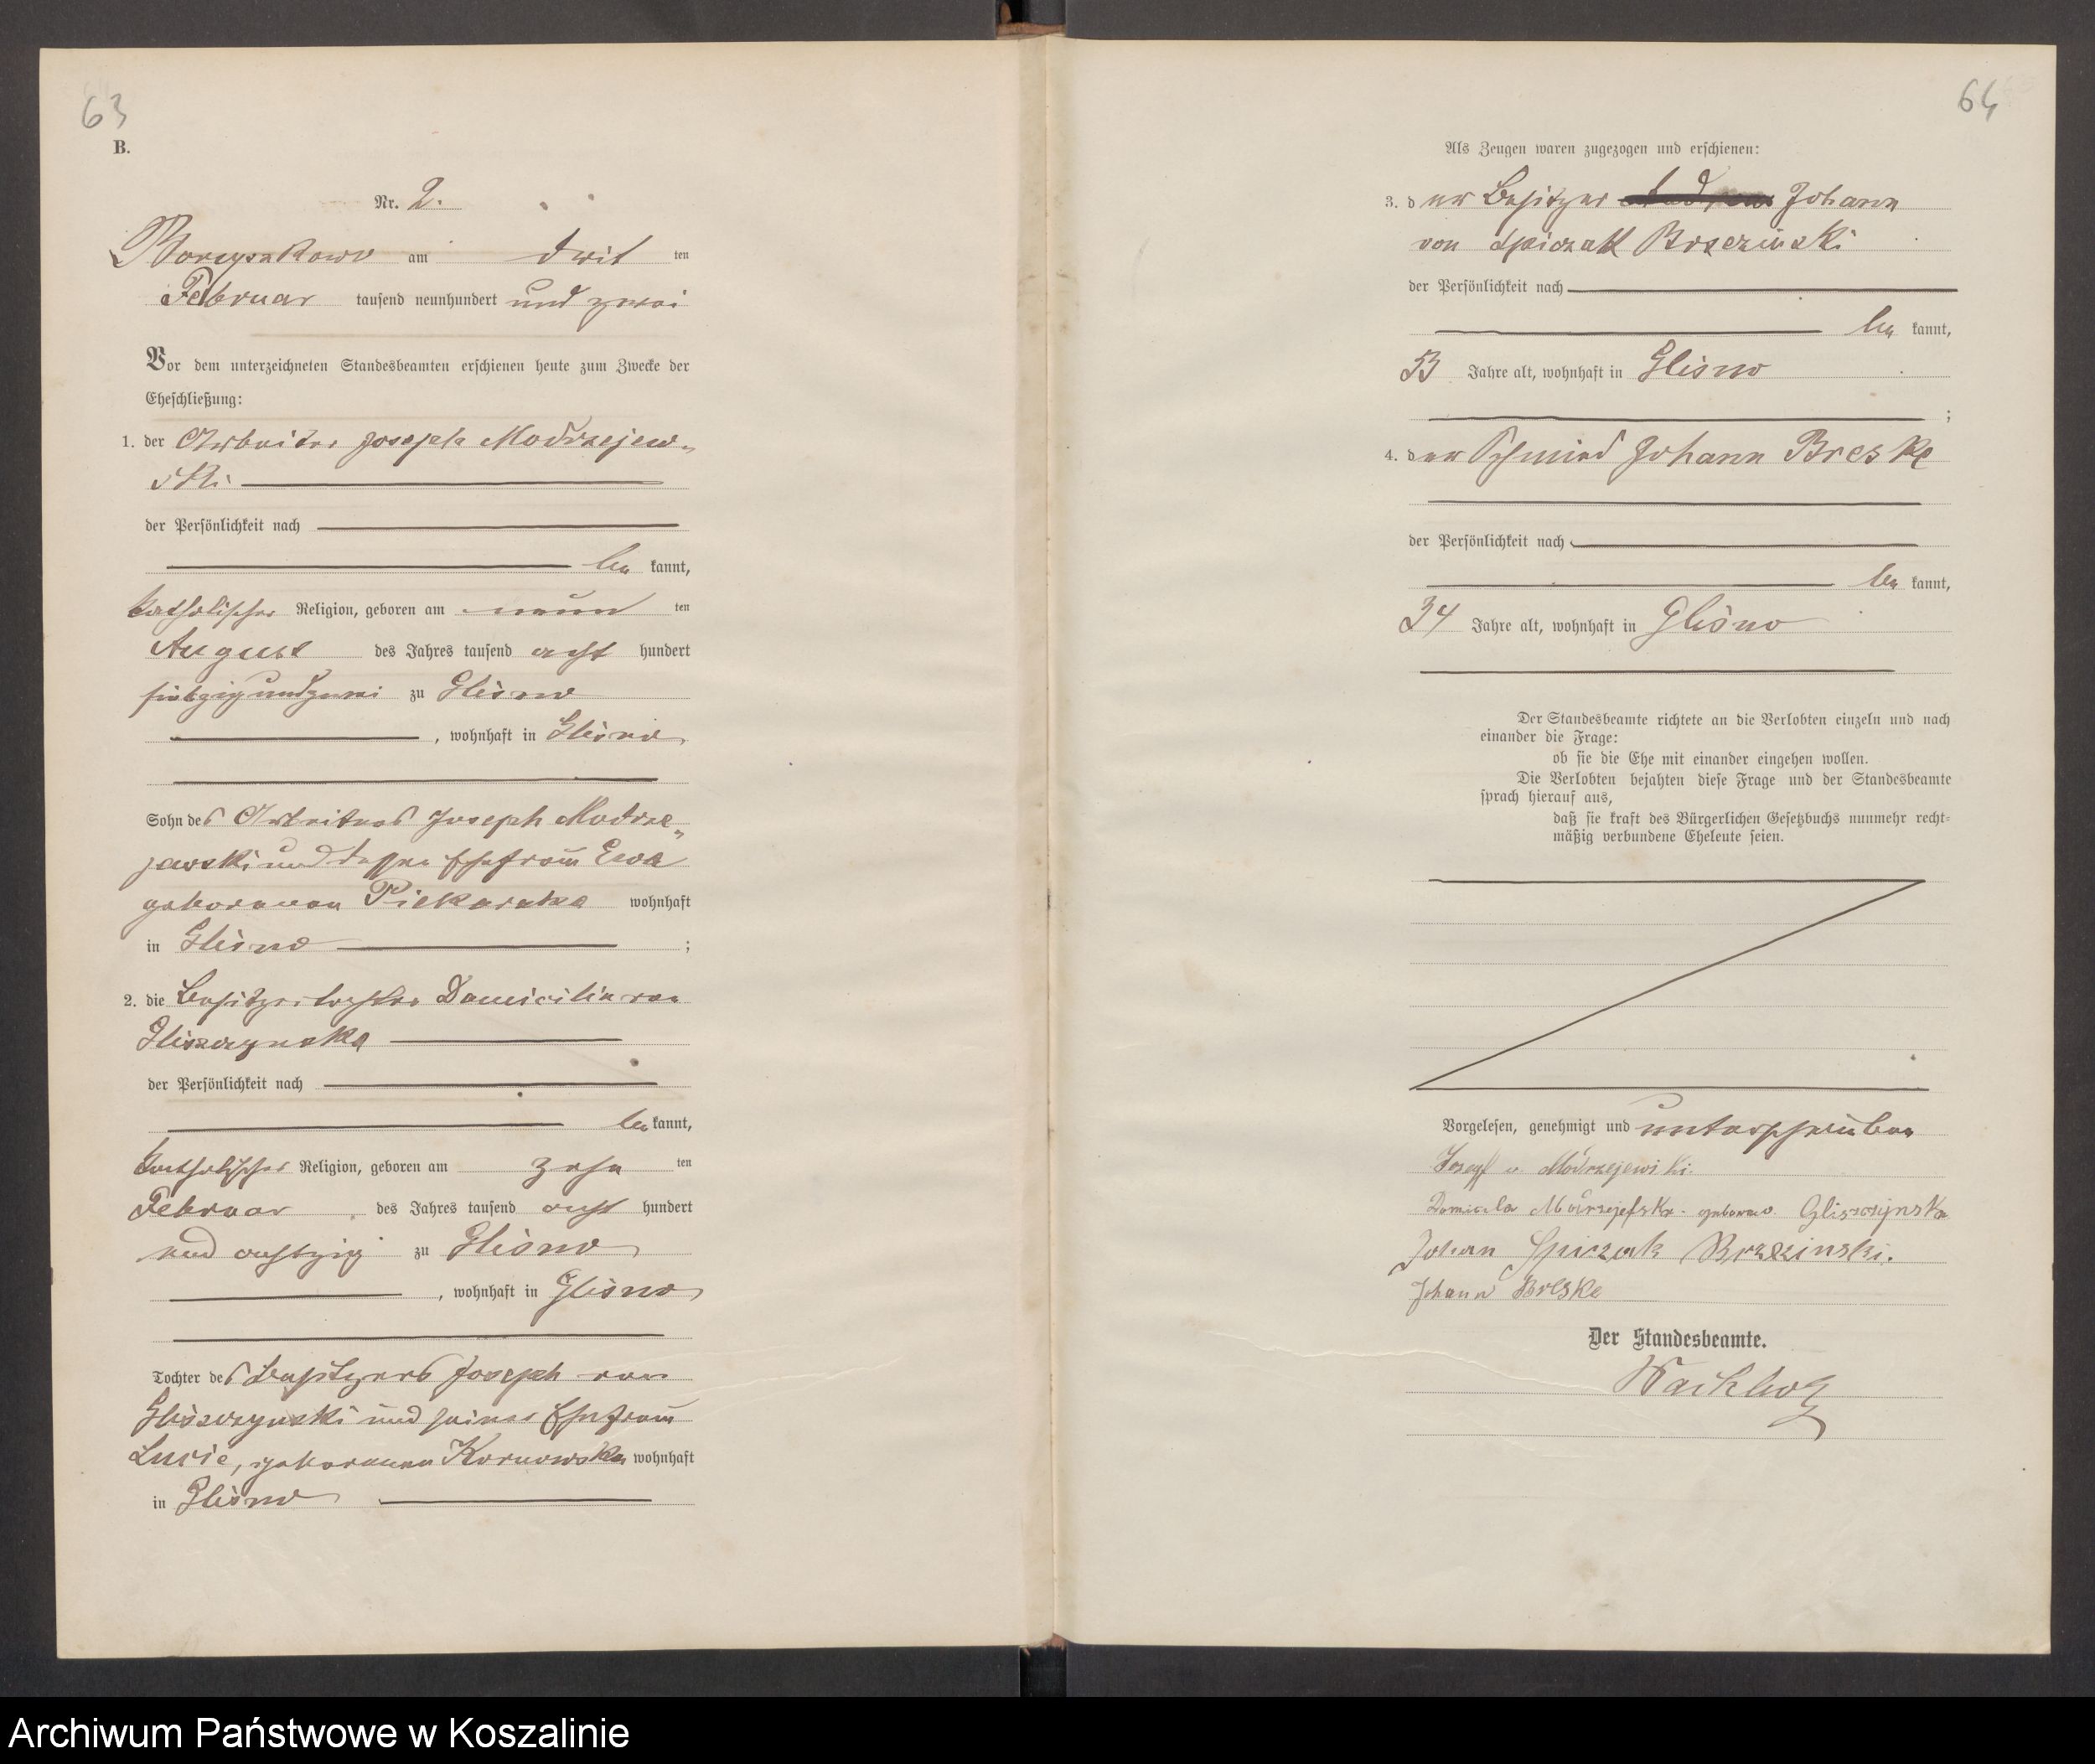 63
B.
Nr. 2.
Borzyskowo am dritten
Februar tausend neunhundert und zwei
Vor dem unterzeichneten Standesbeamten erschienen heute zum Zwecke der
Eheschließung:
1. der Arbeiter Joseph Modrzejew-
ski
der Persönlichkeit nach
bekannt,
katholischer Religion, geboren am neunten
August des Jahres tausend acht hundert
siebzigundzwei zu Glisno
, wohnhaft in Glisno
Sohn des Arbeiters Joseph Modrze-
jewski und dessen Ehefrau Ewa
geborenen Piekarska wohnhaft
in Glisno ;
2. die Besitzertochter Domicilia von
Gliszczynska
der Persönlichkeit nach
bekannt,
katholischer Religion, geboren am zehnten
Februar des Jahres tausend acht hundert
und achtzig zu Glisno
, wohnhaft in Glisno
Tochter des Besitzers Joseph von
Gliszczynski und seiner Ehefrau
Lucie, geborenen Kornowska wohnhaft
in Glisno
64
Als Zeugen waren zugezogen und erschienen:
3. der Besitzer Johann
von Spiczak Brzezinski
der Persönlichkeit nach
bekannt,
53 Jahre alt, wohnhaft in Glisno
;
4. der Schmied Johann Breske
der Persönlichkeit nach
bekannt,
34 Jahre alt, wohnhaft in Glisno
Der Standesbeamte richtete an die Verlobten einzeln und nach
einander die Frage:
ob sie die Ehe mit einander eingehen wollen.
Die Verlobten bejahten diese Frage und der Standesbeamte
sprach hierauf aus,
daß sie kraft des Bürgerlichen Gesetzbuchs nunmehr recht=
mäßig verbundene Eheleute seien.
Vorgelesen, genehmigt und unterschrieben
Josef v. Modrzejewski.
Domicela Modrzejefska geborene Gliszczynska
Johan Spiczak Brzezinski.
Johann Breske
Der Standesbeamte.
Wachholz
Archiwum Państwowe w Koszalinie